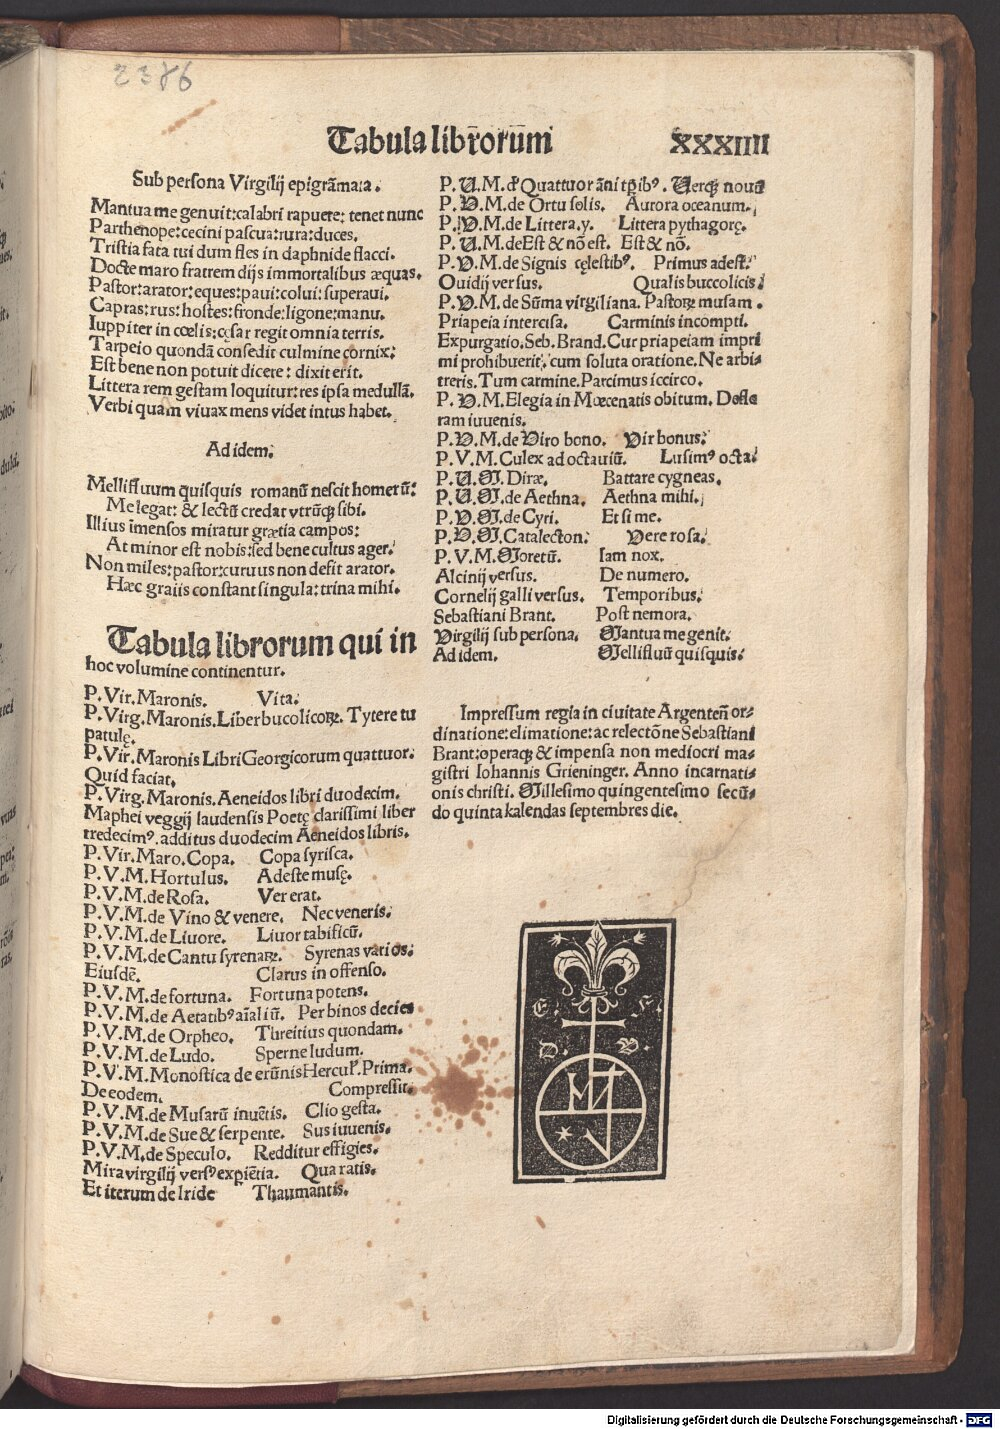 2386
Tabula libr̄orum̄ XXXIIII
Sub persona Virgilij epigrãmata.
Mantua me genuit: calabri rapuere: tenet nunc
Parthenope: cecini pascua: rura: duces.
Tristia fata tui dum fles in daphnide flacci.
Docte maro fratrem dijs immortalibus æquas.
Pastor: arator: eques: paui: colui: superaui.
Capras: rus: hostes: fronde: ligone: manu.
Iuppiter in cœlis: cęsar regit omnia terris.
Tarpeio quondã consedit culmine cornix:
Est bene non potuit dicere: dixit erit.
Littera rem gestam loquitur: res ipsa medullã.
Verbi quam viuax mens videt intus habet.
Ad idem.
Mellifluum quisquis romanũ nescit homerũ:
Me legat: & lectũ credat vtrũqꝫ sibi.
Illius ĩmensos miratur grætia campos:
At minor est nobis: sed bene cultus ager.
Non miles: pastor: curuus non desit arator.
Hæc graiis constant singula: trina mihi.
Tabula librorum qui in
hoc volumine continentur.
P. Vir. Maronis. Vita.
P. Virg. Maronis. Liber bucolicoꝝ. Tytere tu
patulę.
P. Vir. Maronis Libri Georgicorum quattuor.
Quid faciat.
P. Virg. Maronis. Aeneidos libri duodecim.
Maphei veggij laudensis Poetę clarissimi liber
tredecimꝰ. additus duodecim Aeneidos libris.
P. Vir. Maro. Copa. Copa syrisca.
P. V. M. Hortulus. Adeste musę.
P. V. M. de Rosa. Ver erat.
P. V. M. de Vino & venere. Nec veneris.
P. V. M. de Liuore. Liuor tabificũ.
P. V. M. de Cantu syrenaꝝ. Syrenas varios.
Eiusdẽ. Clarus in offenso.
P. V. M. de fortuna. Fortuna potens.
P. V. M. de Aetatibꝰ aĩaliũ. Per binos decies
P. V. M. de Orpheo. Threitius quondam.
P. V. M. de Ludo. Sperne ludum.
P. V. M. Monostica de erũnis Hercuł. Prima.
De eodem. Compressit.
P. V. M. de Musarũ inuẽtis. Clio gesta.
P. V. M. de Sue & serpente. Sus iuuenis.
P. V. M. de Speculo. Redditur effigies.
Mira virgilij versꝰ expiẽtia. Qua ratis.
Et iterum de Iride Thaumantis.
P. V. M. d' Quattuor ãni tp̃ibꝰ. Verqꝫ nouũ
P. V. M. de Ortu solis. Aurora oceanum.
P. V. M. de Littera. y. Littera pythagorę.
P. V. M. de Est & nõ est. Est & nõ.
P. V. M. de Signis cęlestibꝰ. Primus adest.
Ouidij versus. Qualis buccolicis.
P. V. M. de Sũma virgiliana. Pastoꝝ musam.
Priapeia intercisa. Carminis incompti.
Expurgatio. Seb. Brand. Cur priapeiam impri
mi prohibuerit: cum soluta oratione. Ne arbi-
treris. Tum carmine. Parcimus iccirco.
P. V. M. Elegia in Mœcenatis obitum. Defle
ram iuuenis.
P. V. M. de Viro bono. Vir bonus.
P. V. M. Culex ad octauiũ. Lusimꝰ octa.
P. V. M. Diræ. Battare cygneas.
P. V. M. de Aethna. Aethna mihi.
P. V. M. de Cyri. Et si me.
P. V. M. Catalecton. Vere rosa.
P. V. M. Moretũ. Iam nox.
Alcinij versus. De numero.
Cornelij galli versus. Temporibus.
Sebastiani Brant. Post nemora.
Virgilij sub persona. Mantua me genit.
Ad idem. Mellifluũ quisquis.
Impressum regia in ciuitate Argenteñ or-
dinatione: elimatione: ac relectõne Sebastiani
Brant: operaqꝫ & impensa non mediocri ma-
gistri Iohannis Grieninger. Anno incarnati-
onis christi. Millesimo quingentesimo secũ-
do quinta kalendas septembres die.
E. F.
D. V.
Digitalisierung gefördert durch die Deutsche Forschungsgemeinschaft - DFG